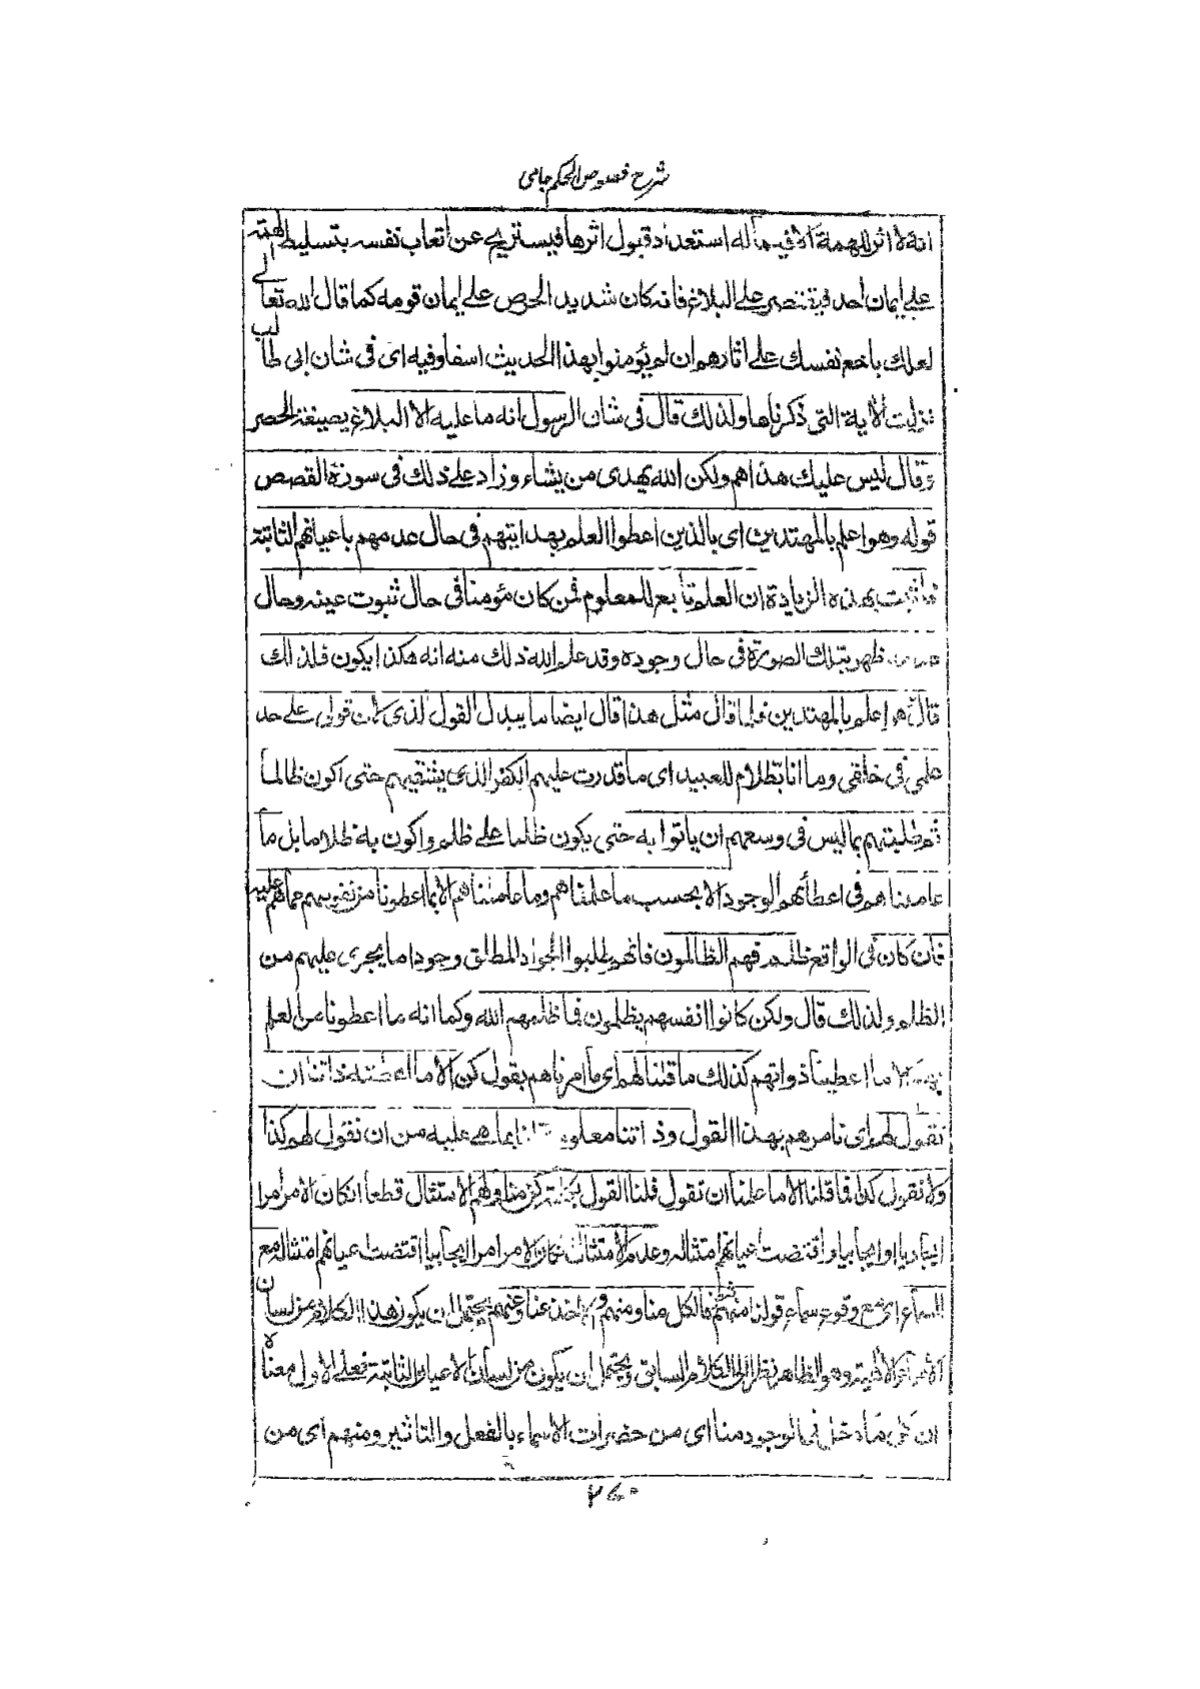 شرح فصوص الحكم جامى
انه لا اثر للهمة الا فى ما له استعداد قبول اثرها فيستريح عن اتعاب نفسه بتسليط الهمة
على ايمان احد فيقتصر على البلاغ فانه كان شديد الحرص على ايمان قومه كما قال الله تعالى
لعلك باخع نفسك على اثارهم ان لم يؤمنوا بهذا الحديث اسفا وفيه اى فى شان ابى طالب
نزلت الآية التى ذكرناها ولذلك قال فى شان الرسول انه ما عليه الا البلاغ بصيغة الحصر
وقال ليس عليك هداهم ولكن الله يهدى من يشاء وزاد على ذلك فى سورة القصص
قوله وهو اعلم بالمهتدين اى بالذين اعطوا العلم بهدايتهم فى حال عدمهم باعيانهم الثابتة
فاثبت بهذه الزيادة ان العلم تابع للمعلوم فمن كان مؤمنا فى حال ثبوت عينه وحال
ظهر بتلك الصورة فى حال وجوده وقد علم الله ذلك منه انه هكذا يكون فلذلك
قال هو اعلم بالمهتدين فلما قال مثل هذا قال ايضا ما يبدل القول لدى لان قولى على حد
علمى فى خلقى وما انا بظلام للعبيد اى ما قدرت عليهم الكفر الذى يشقيهم حتى اكون ظالما
ثم طلبتهم بما ليس فى وسعهم ان ياتوا به حتى يكون ظلما على ظلم واكون به ظلاما بل ما
عاملناهم فى اعطائهم الوجود الا بحسب ما علمناهم وما علمناهم الا بما اعطونا من نفوسهم مما هم عليه
فان كان فى الواقع ظلم فهم الظالمون فانهم طلبوا الجواد المطلق وجود ما يجرى عليهم من
الظلم ولذلك قال ولكن كانوا انفسهم يظلمون فما ظلمهم الله وكما انه ما اعطونا من العلم
الا ما اعطينا ذواتهم كذلك ما قلنا لهم اى ما امرناهم بقول كن الا ما اعطته ذاتنا ان
نقول لهم اى نامرهم بهذا القول وذاتنا معلومة لنا بما هى عليه من ان نقول لهم كذا
ولا نقول كذا فما قلنا الا ما علمنا ان نقول فلنا القول منا ولهم الامتثال قطعا ان كان الامر امرا
ايجاديا او ايجابيا واقتضت اعيانهم امتثاله وعدم الامتثال ان كان الامر امرا ايجابيا اقتضت اعيانهم امتثاله مع
السماع اى مع وقوع سماع قولنا منهم شعر فالكل منا ومنهم والاخذ عنا وعنهم يحتمل ان يكون هذا الكلام من لسان
الاسماء الالهية وهو الظاهر نظرا الى الكلام السابق ويحتمل ان يكون من لسان الاعيان الثابتة فعلى الاول معناه
ان كل ما دخل فى الوجود منا اى من حضرات الاسماء بالفعل والتاثير ومنهم اى من